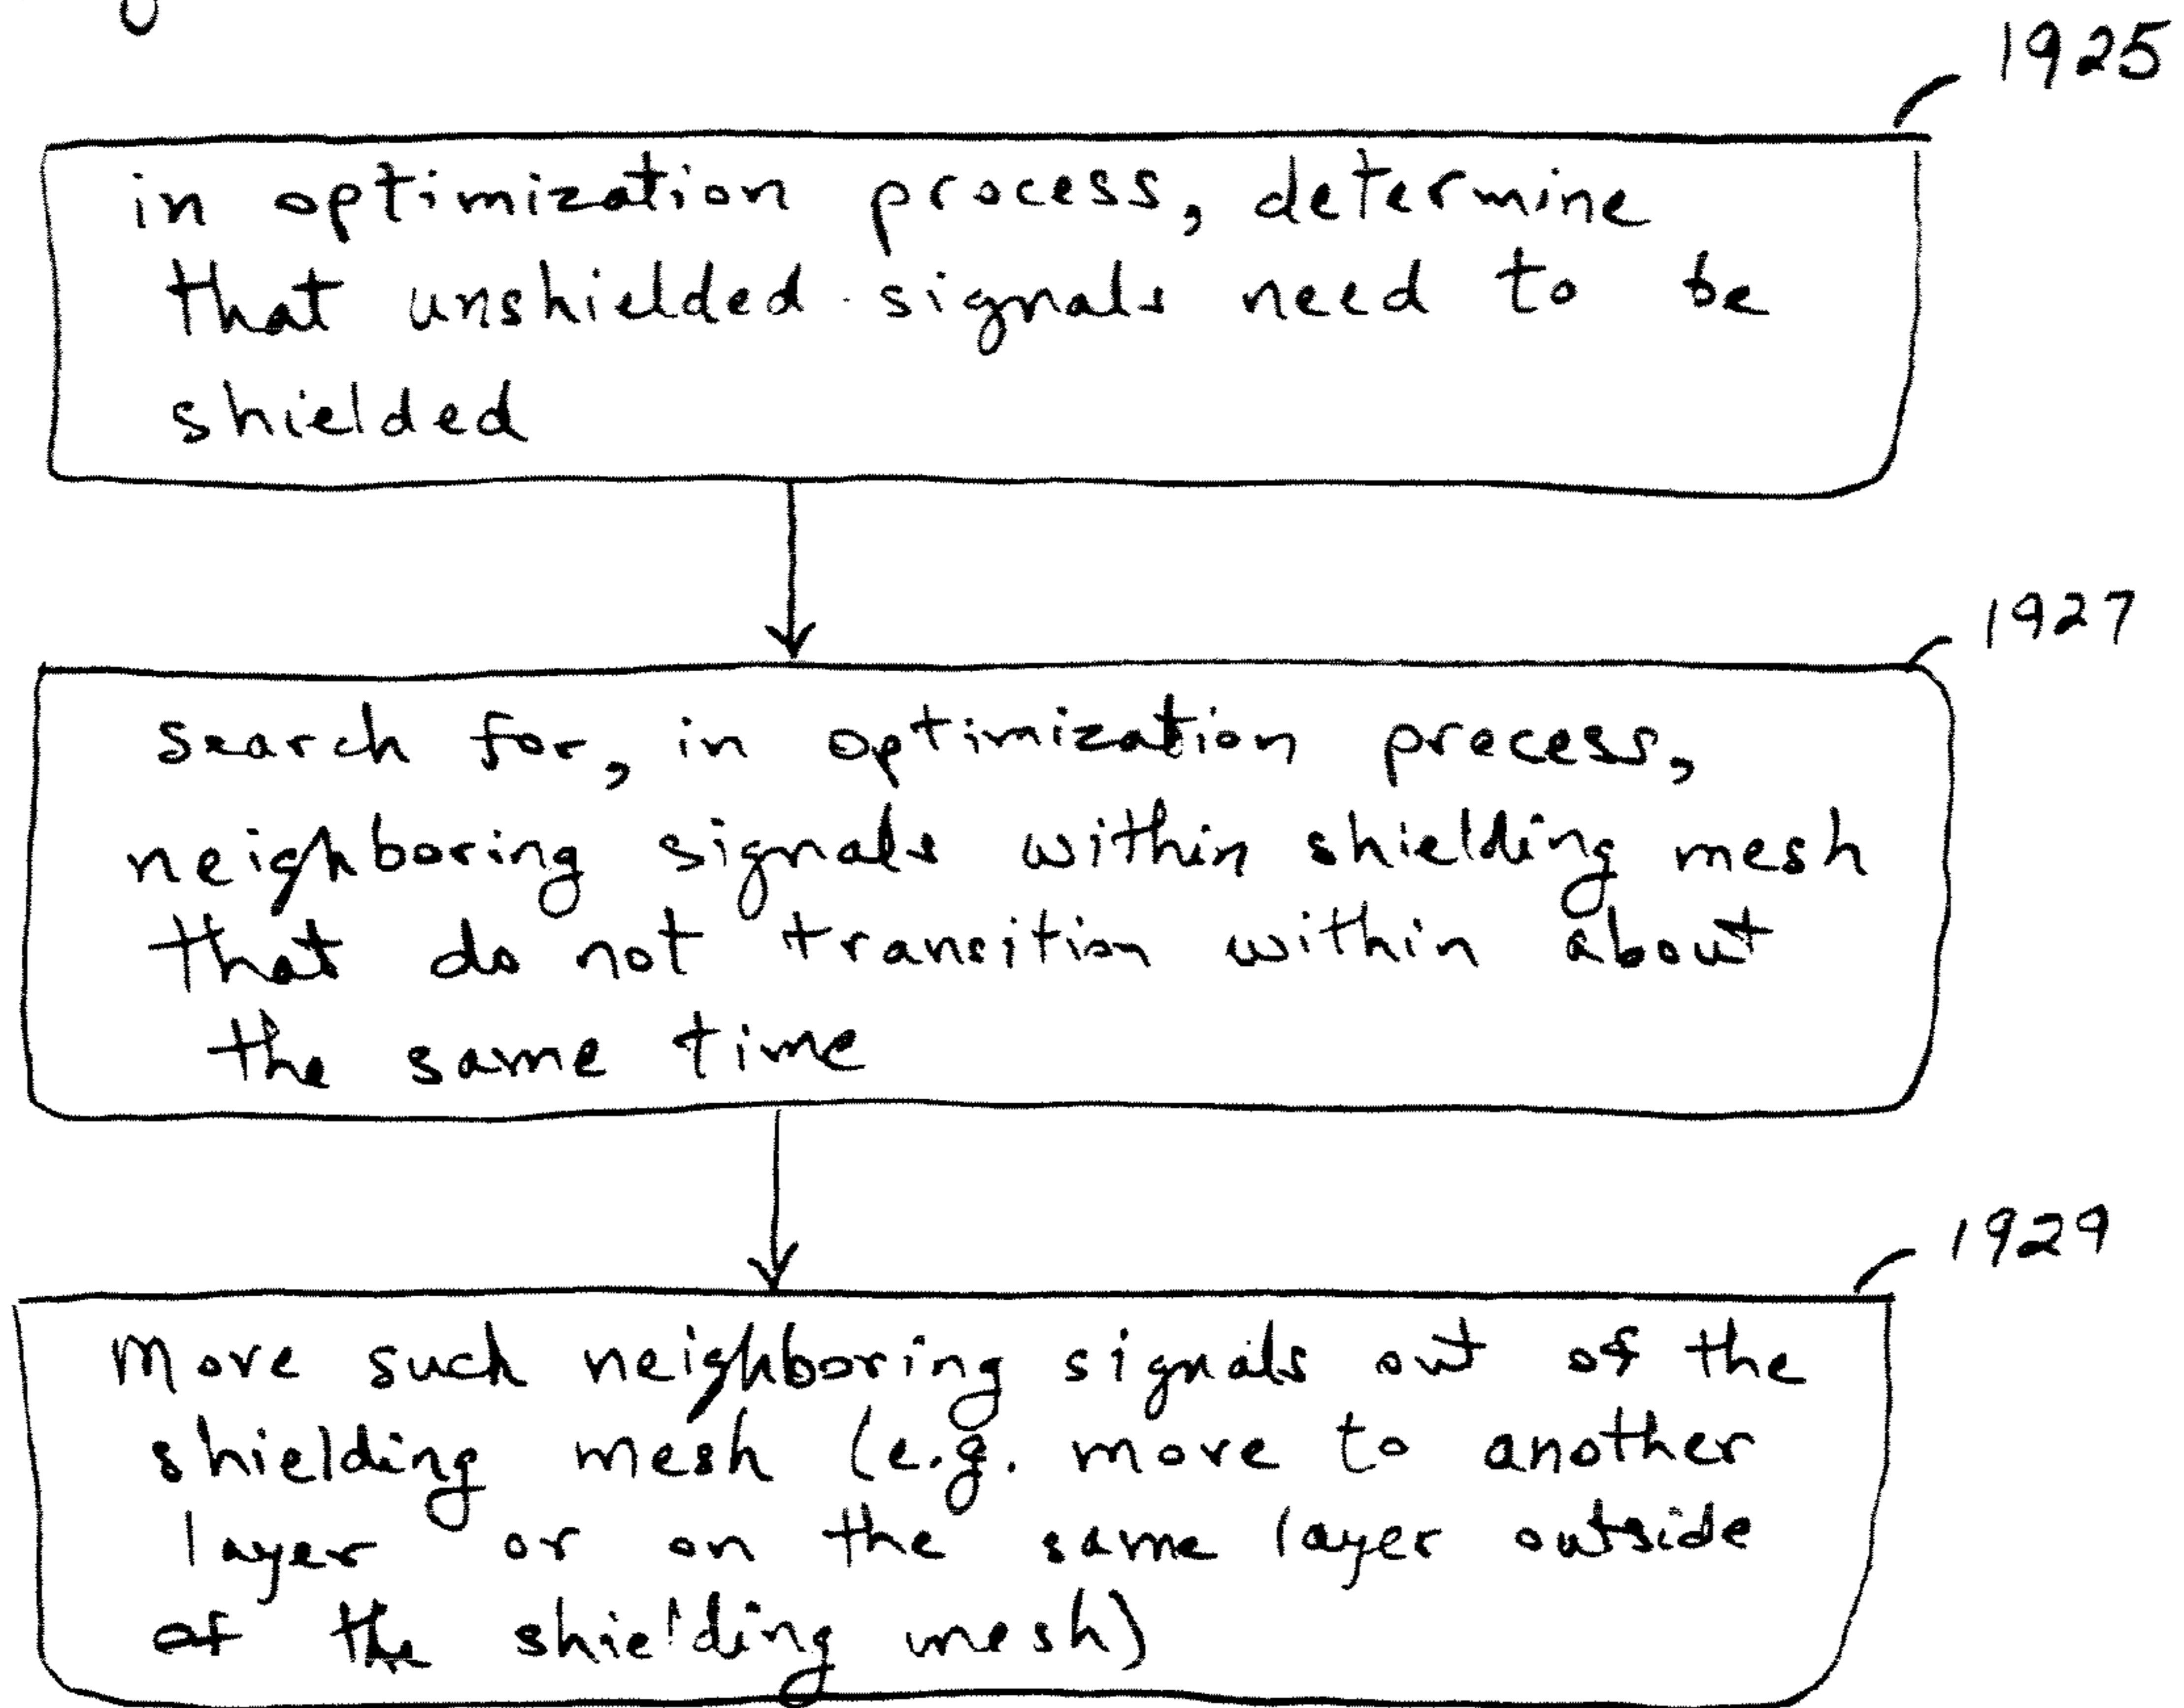 1925
in optimization process, determine
that unshielded signals need to be
shielded
1927
search for, in optimization process,
neighboring signals within shielding mesh
that do not transition within about
the same time
1929
Move such neighboring signals out of the
shielding mesh (e.g. move to another
layer or on the same layer outside
of the shielding mesh)